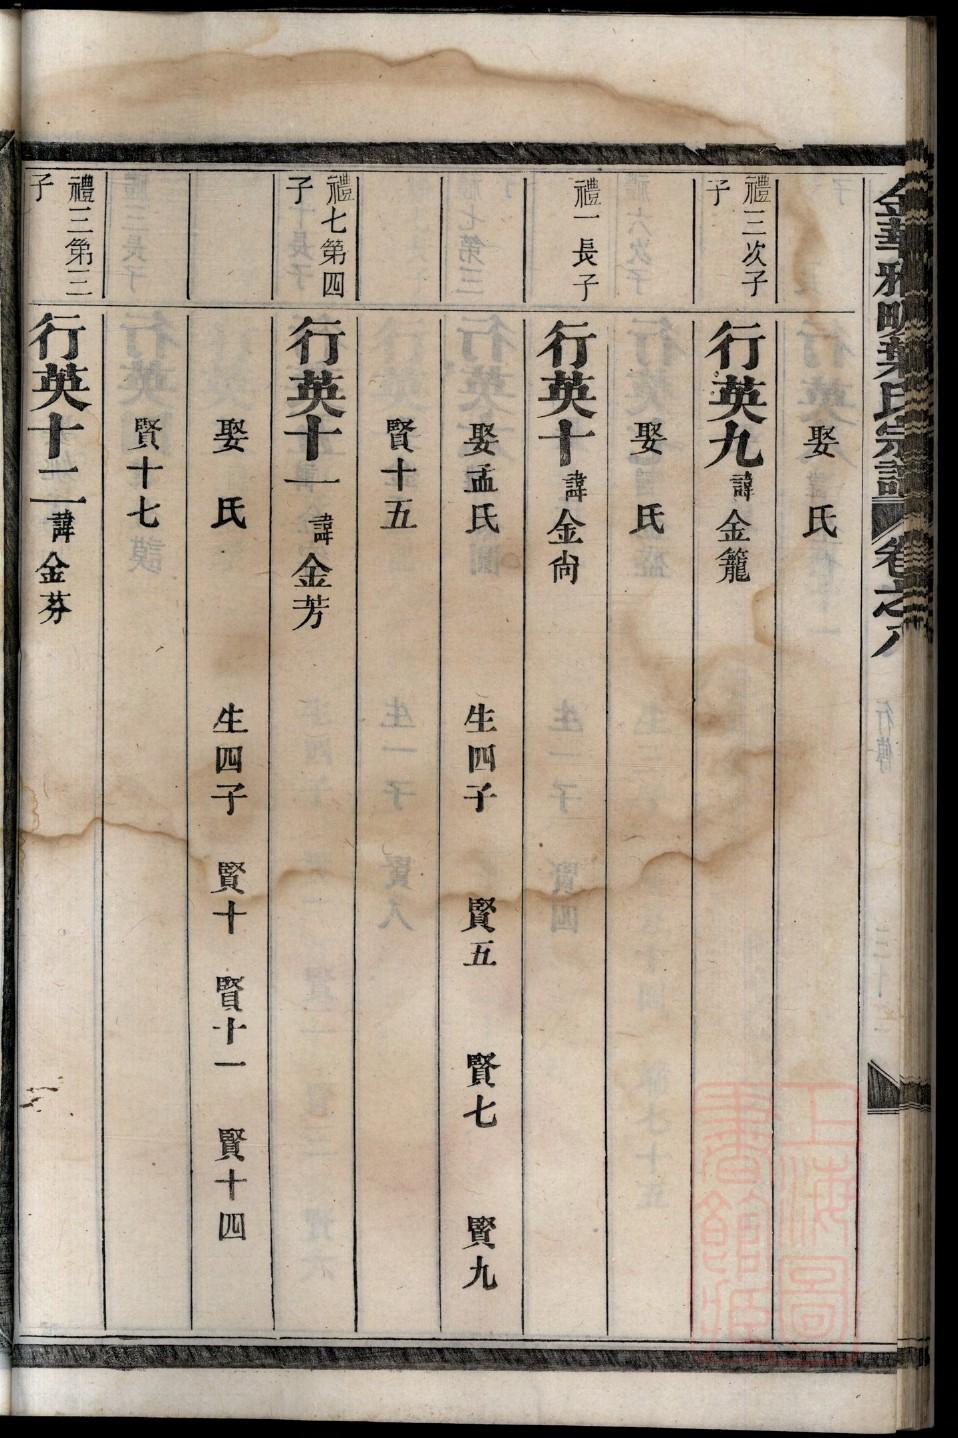 金華雅畈葉氏宗譜 卷之八 行傳
娶 氏
禮三次子
行英九 諱 金籠
娶 氏
禮一長子
行英十 諱 金尙
娶孟氏 生四子 賢五 賢七 賢九
賢十五
禮七第四子
行英十一 諱 金芳
娶 氏 生四子 賢十 賢十一 賢十四
賢十七
禮三第三子
行英十二 諱 金芬
上海圖書館藏